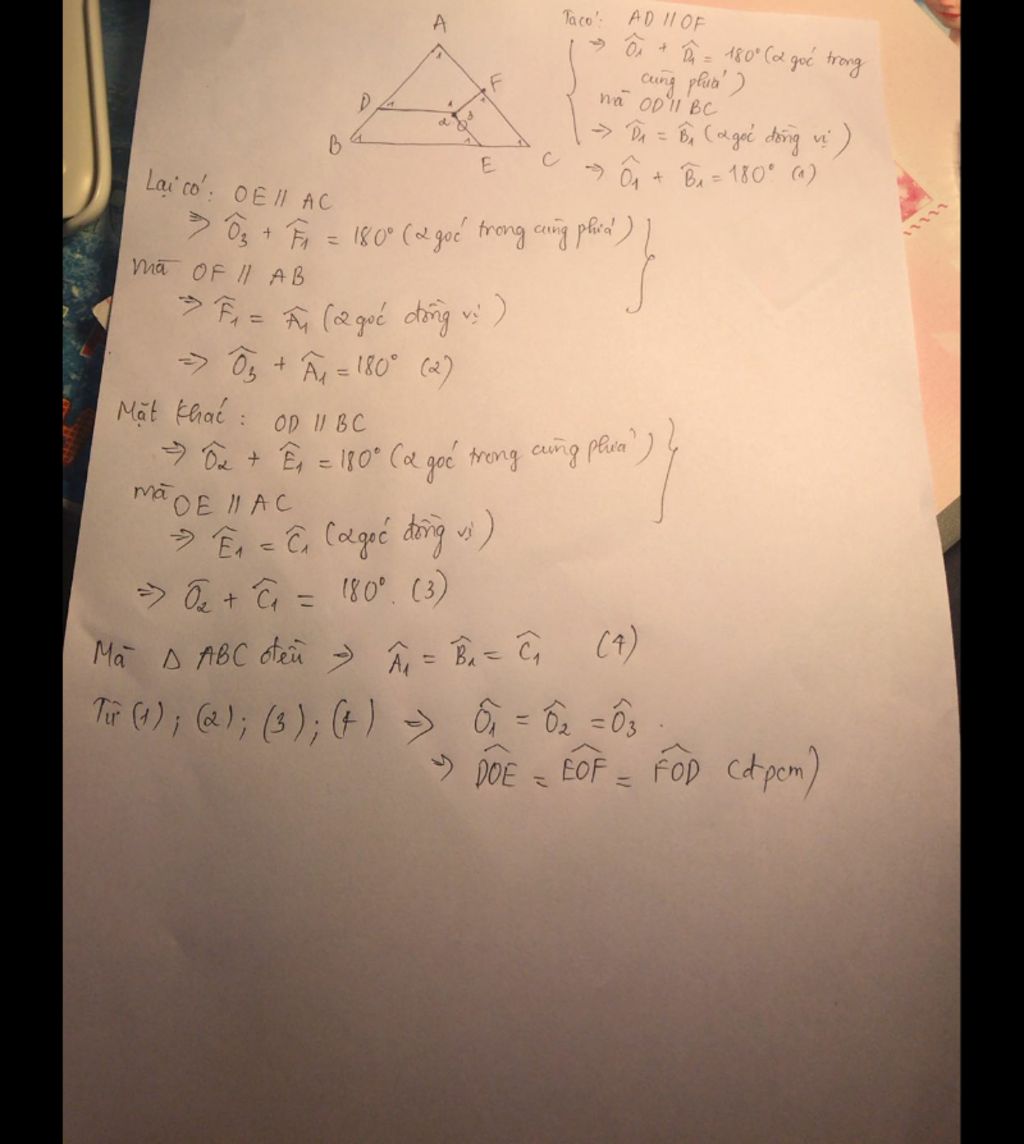 A
F
D 1
1
1
1
2 O 3
B 1
1
E
1
C
Ta có: AD // OF
=> Ô1 + D̂1 = 180° (2 góc trong
cùng phía)
mà OD // BC
=> D̂1 = B̂1 (2 góc đồng vị)
=> Ô1 + B̂1 = 180° (1)
Lại có: OE // AC
=> Ô3 + F̂1 = 180° (2 góc trong cùng phía)
mà OF // AB
=> F̂1 = Â1 (2 góc đồng vị)
=> Ô3 + Â1 = 180° (2)
Mặt khác: OD // BC
=> Ô2 + Ê1 = 180° (2 góc trong cùng phía)
mà OE // AC
=> Ê1 = Ĉ1 (2 góc đồng vị)
=> Ô2 + Ĉ1 = 180°. (3)
Mà Δ ABC đều => Â1 = B̂1 = Ĉ1 (4)
Từ (1); (2); (3); (4) => Ô1 = Ô2 = Ô3.
=> DÔE = EÔF = FÔD (đpcm)